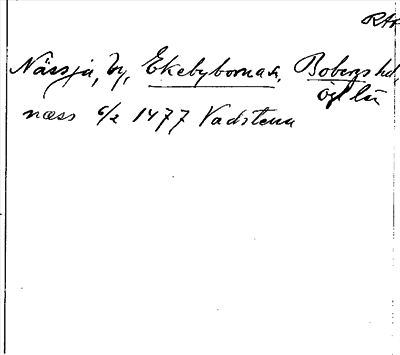 RAp
Nässja, by, Ekebyborna sn, Bobergs hd,
Ög län
næss 6/2 1477 Vadstena